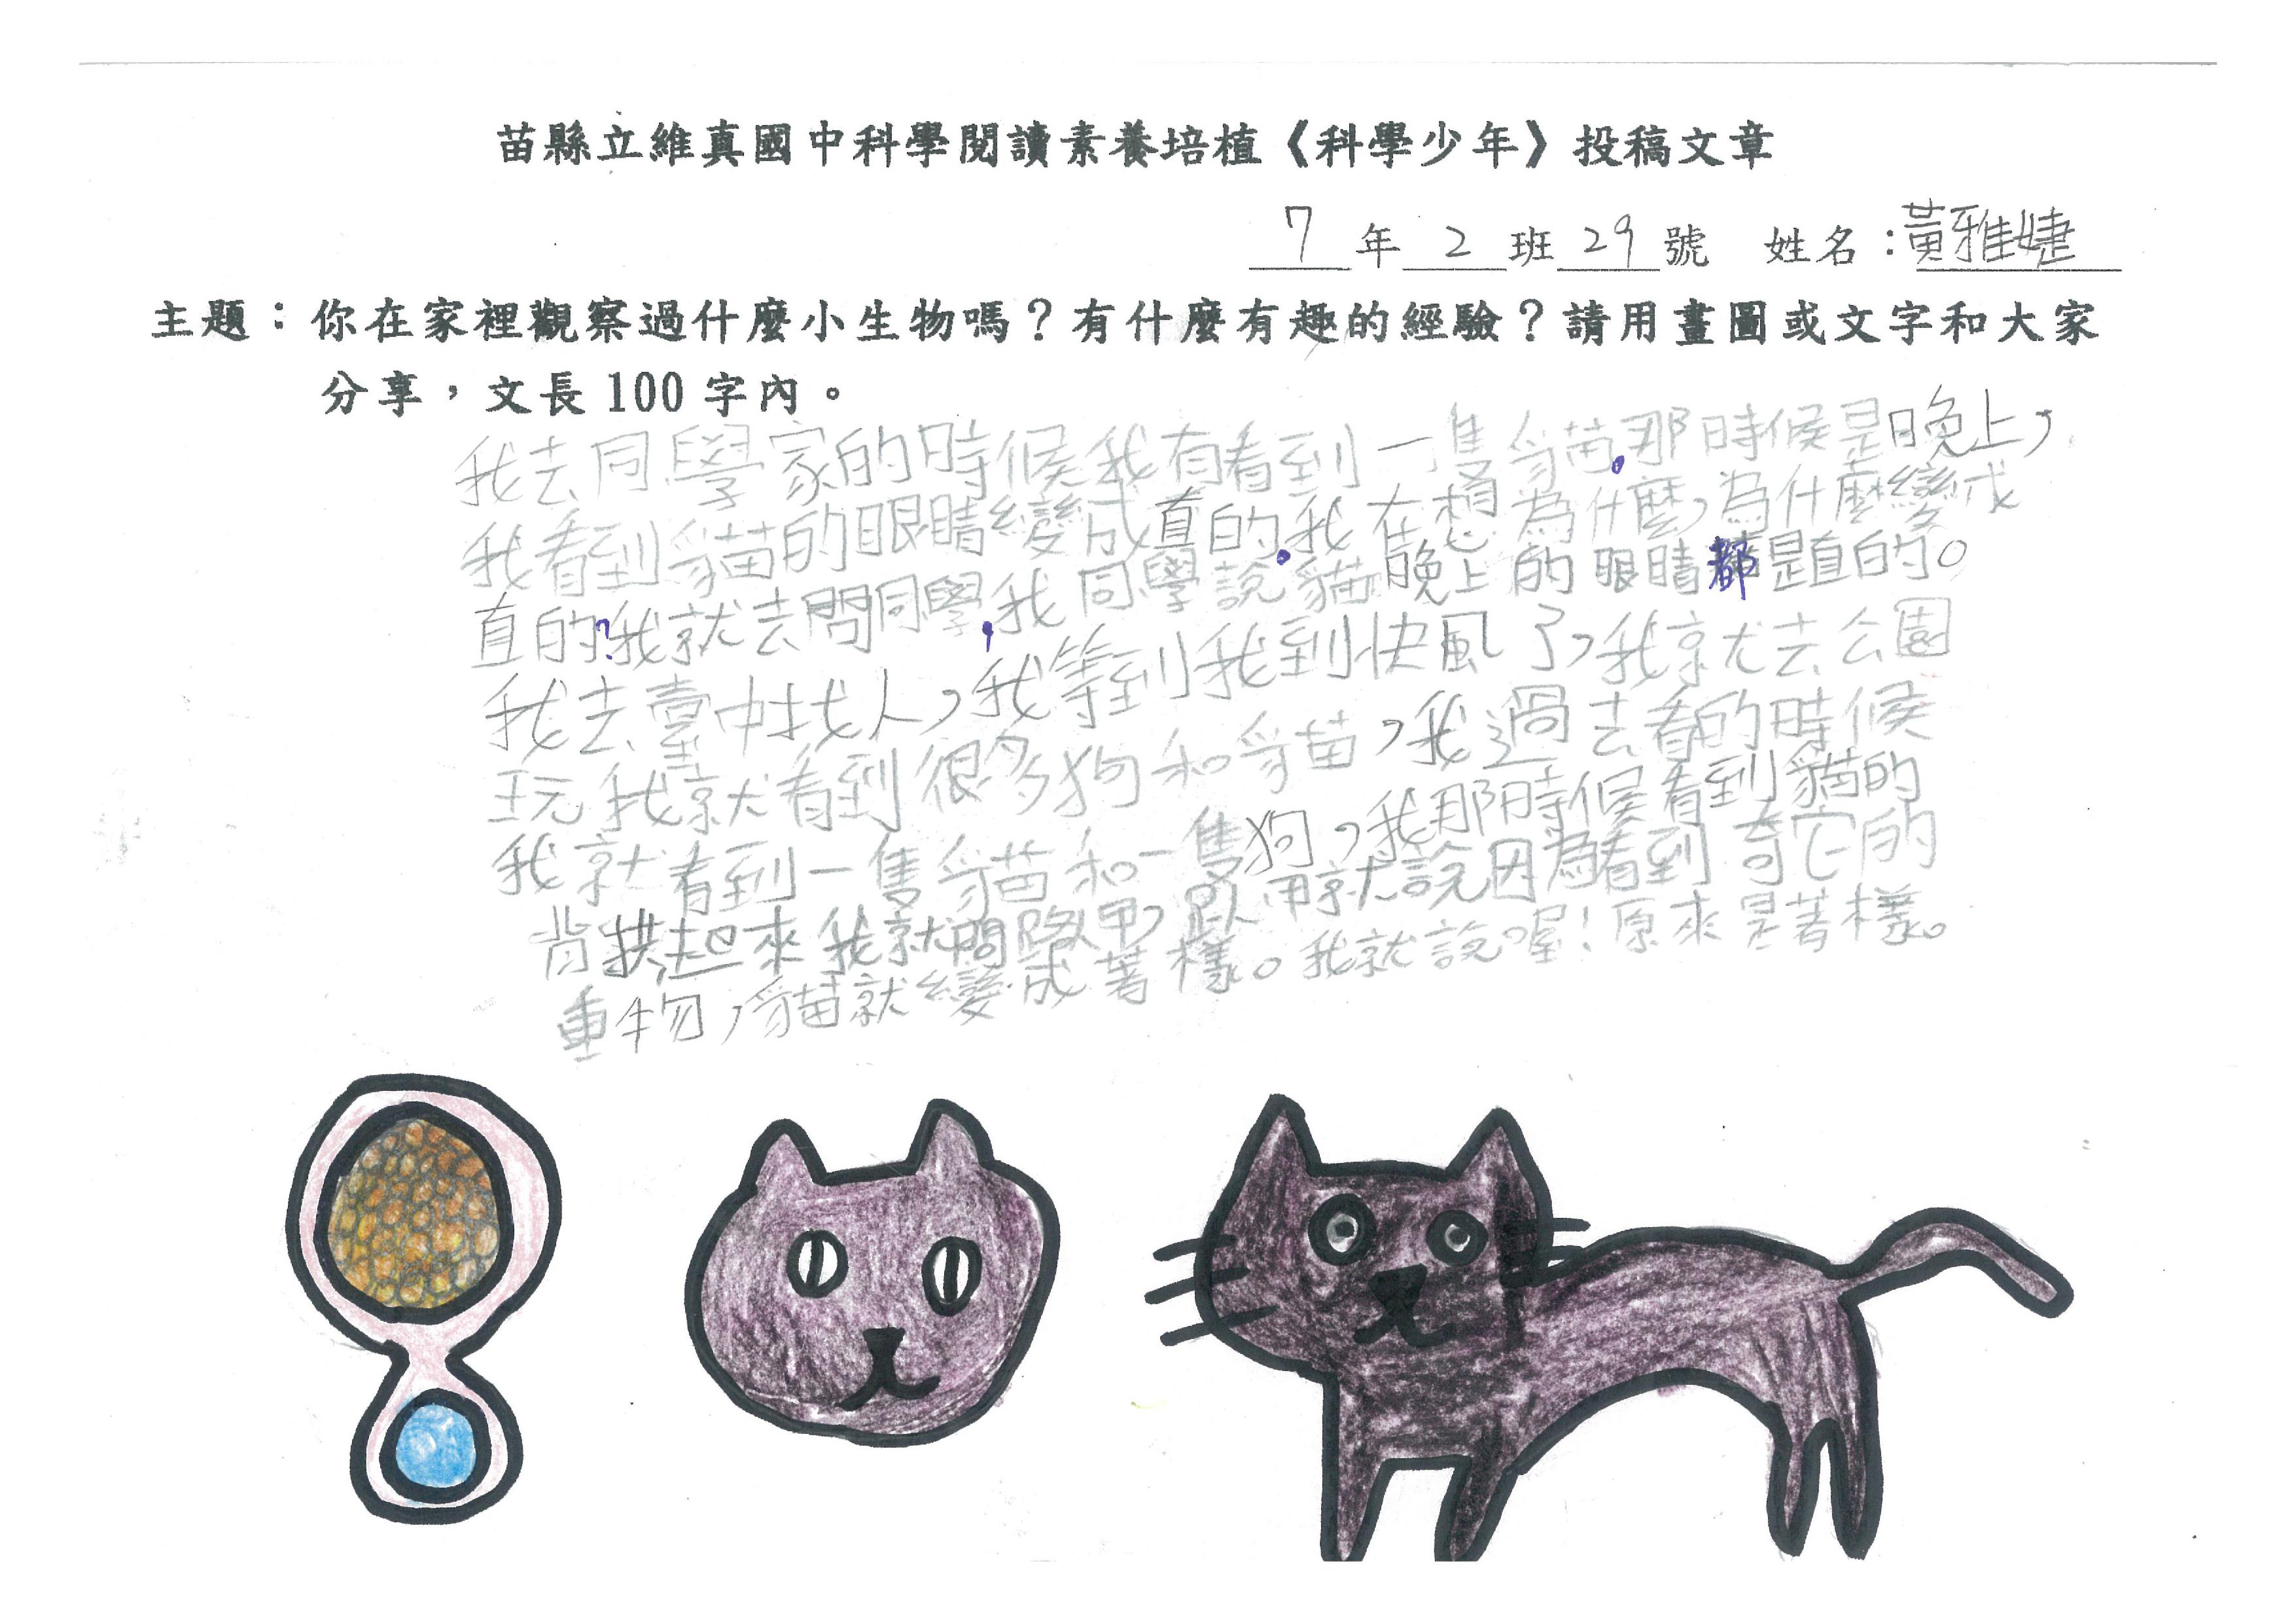 苗縣立維真國中科學閱讀素養培植《科學少年》投稿文章
7年2班29號 姓名：黃雅婕
主題：你在家裡觀察過什麼小生物嗎？有什麼有趣的經驗？請用畫圖或文字和大家
分享，文長100字內。
我去同學家的時候我有看到一隻貓，那時候是晚上，
我看到貓的眼睛變成直的，我在想為什麼，為什麼變成
直的？我就去問同學，我同學說貓晚上的眼睛都是直的。
我去臺中找人，我等到我到快風了，我就去公園
玩我就看到很多狗和貓，我過去看的時候
我就看到一隻貓和一隻狗，我那時候看到貓的
背拱起來我就問路甲，路人甲就說因為看到奇它的
重物，貓就變成著樣。我就說喔！原來是著樣。